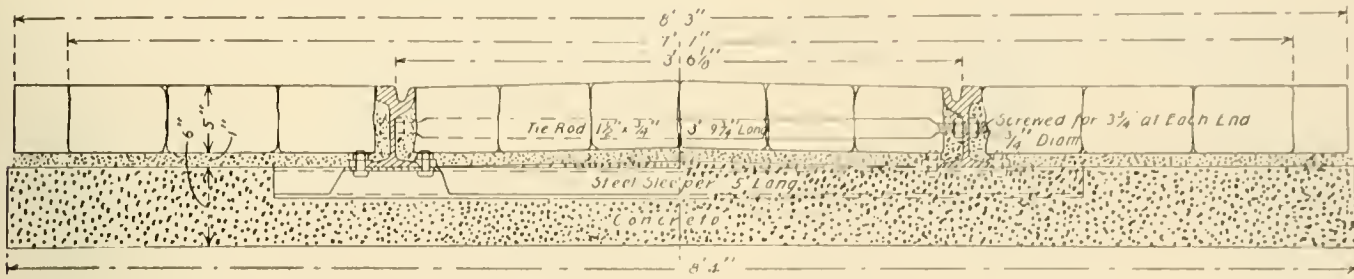 8' 3"
7' 1"
3' 6 1/8"
6"
5"
1"
Tie Rod 1 1/2" x 3/4" 3' 9 3/4" Long
Screwed for 3 3/4" at Each End
3/4" Diam
Steel Sleeper 5' Long
Concrete
8' 4"